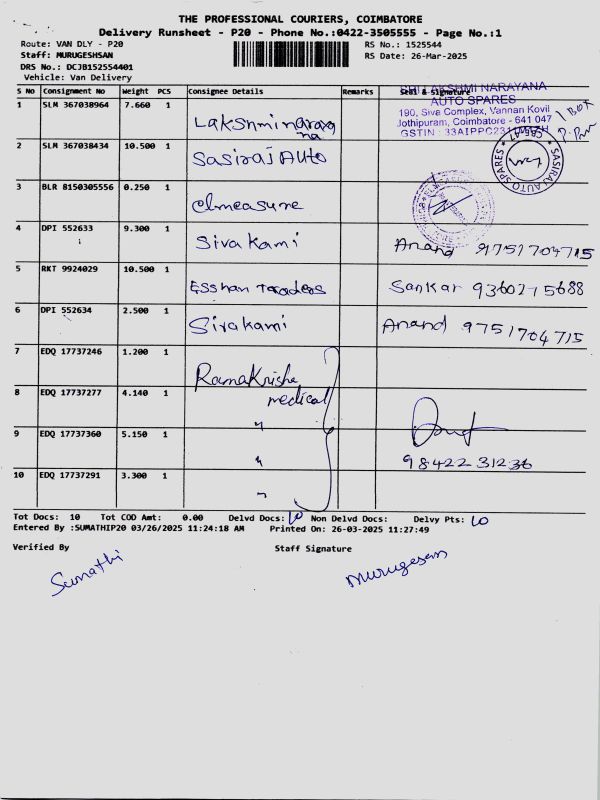 THE PROFESSIONAL COURIERS, COIMBATORE
Delivery Runsheet - P20 - Phone No.:0422-3505555 - Page No.:1
Route: VAN DLY - P20
Staff: MURUGESHSAN
DRS No.: DCJB152554401
Vehicle: Van Delivery
RS No.: 1525544
RS Date: 26-Mar-2025
S No Consignment No Weight PCS Consignee Details Remarks Seal & Signature
1 SLM 367038964 7.660 1 Lakshminaraya
na
SRI LAKSHMI NARAYANA
AUTO SPARES
190, Siva Complex, Vannan Kovil
Jothipuram, Coimbatore - 641 047
GSTIN : 33AIPPC
1 Box
2 SLM 367038434 10.500 1 Sasiraj Auto
SASIRAJ AUTO SPARES
3 BLR 8150305556 0.250 1 elmeasure
4 DPI 552633 9.300 1 Sivakami Anand 9751704715
5 RKT 9924029 10.500 1 Esshan Traders Sankar 9360215688
6 DPI 552634 2.500 1 Sivakami Anand 9751704715
7 EDQ 17737246 1.200 1 Ramakrishe
medical
8 EDQ 17737277 4.140 1 "
9 EDQ 17737360 5.150 1 " 98422 31236
10 EDQ 17737291 3.300 1 "
Tot Docs: 10 Tot COD Amt: 0.00 Delvd Docs: 10 Non Delvd Docs: Delvy Pts: 10
Entered By :SUMATHIP20 03/26/2025 11:24:18 AM Printed On: 26-03-2025 11:27:49
Verified By Staff Signature
Sumathi Murugesan